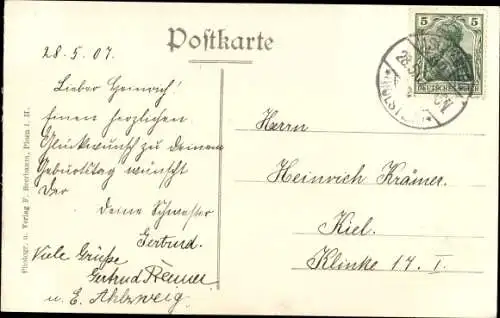 Postkarte
28.5.07.
Lieber Heinrich!
Einen herzlichen
Glückwunsch zu deinem
Geburtstag wünscht
Der
deine Schwester
Gertrud.
Viele Grüße
Gertrud
u. E. Ahlzweig.
Herrn
Heinrich Krämer.
Kiel.
Klinke 17. I.
5 5
DEUTSCHES REICH
(HOLSTEIN)
Photogr. u. Verlag F. Beermann, Ploen i. H.